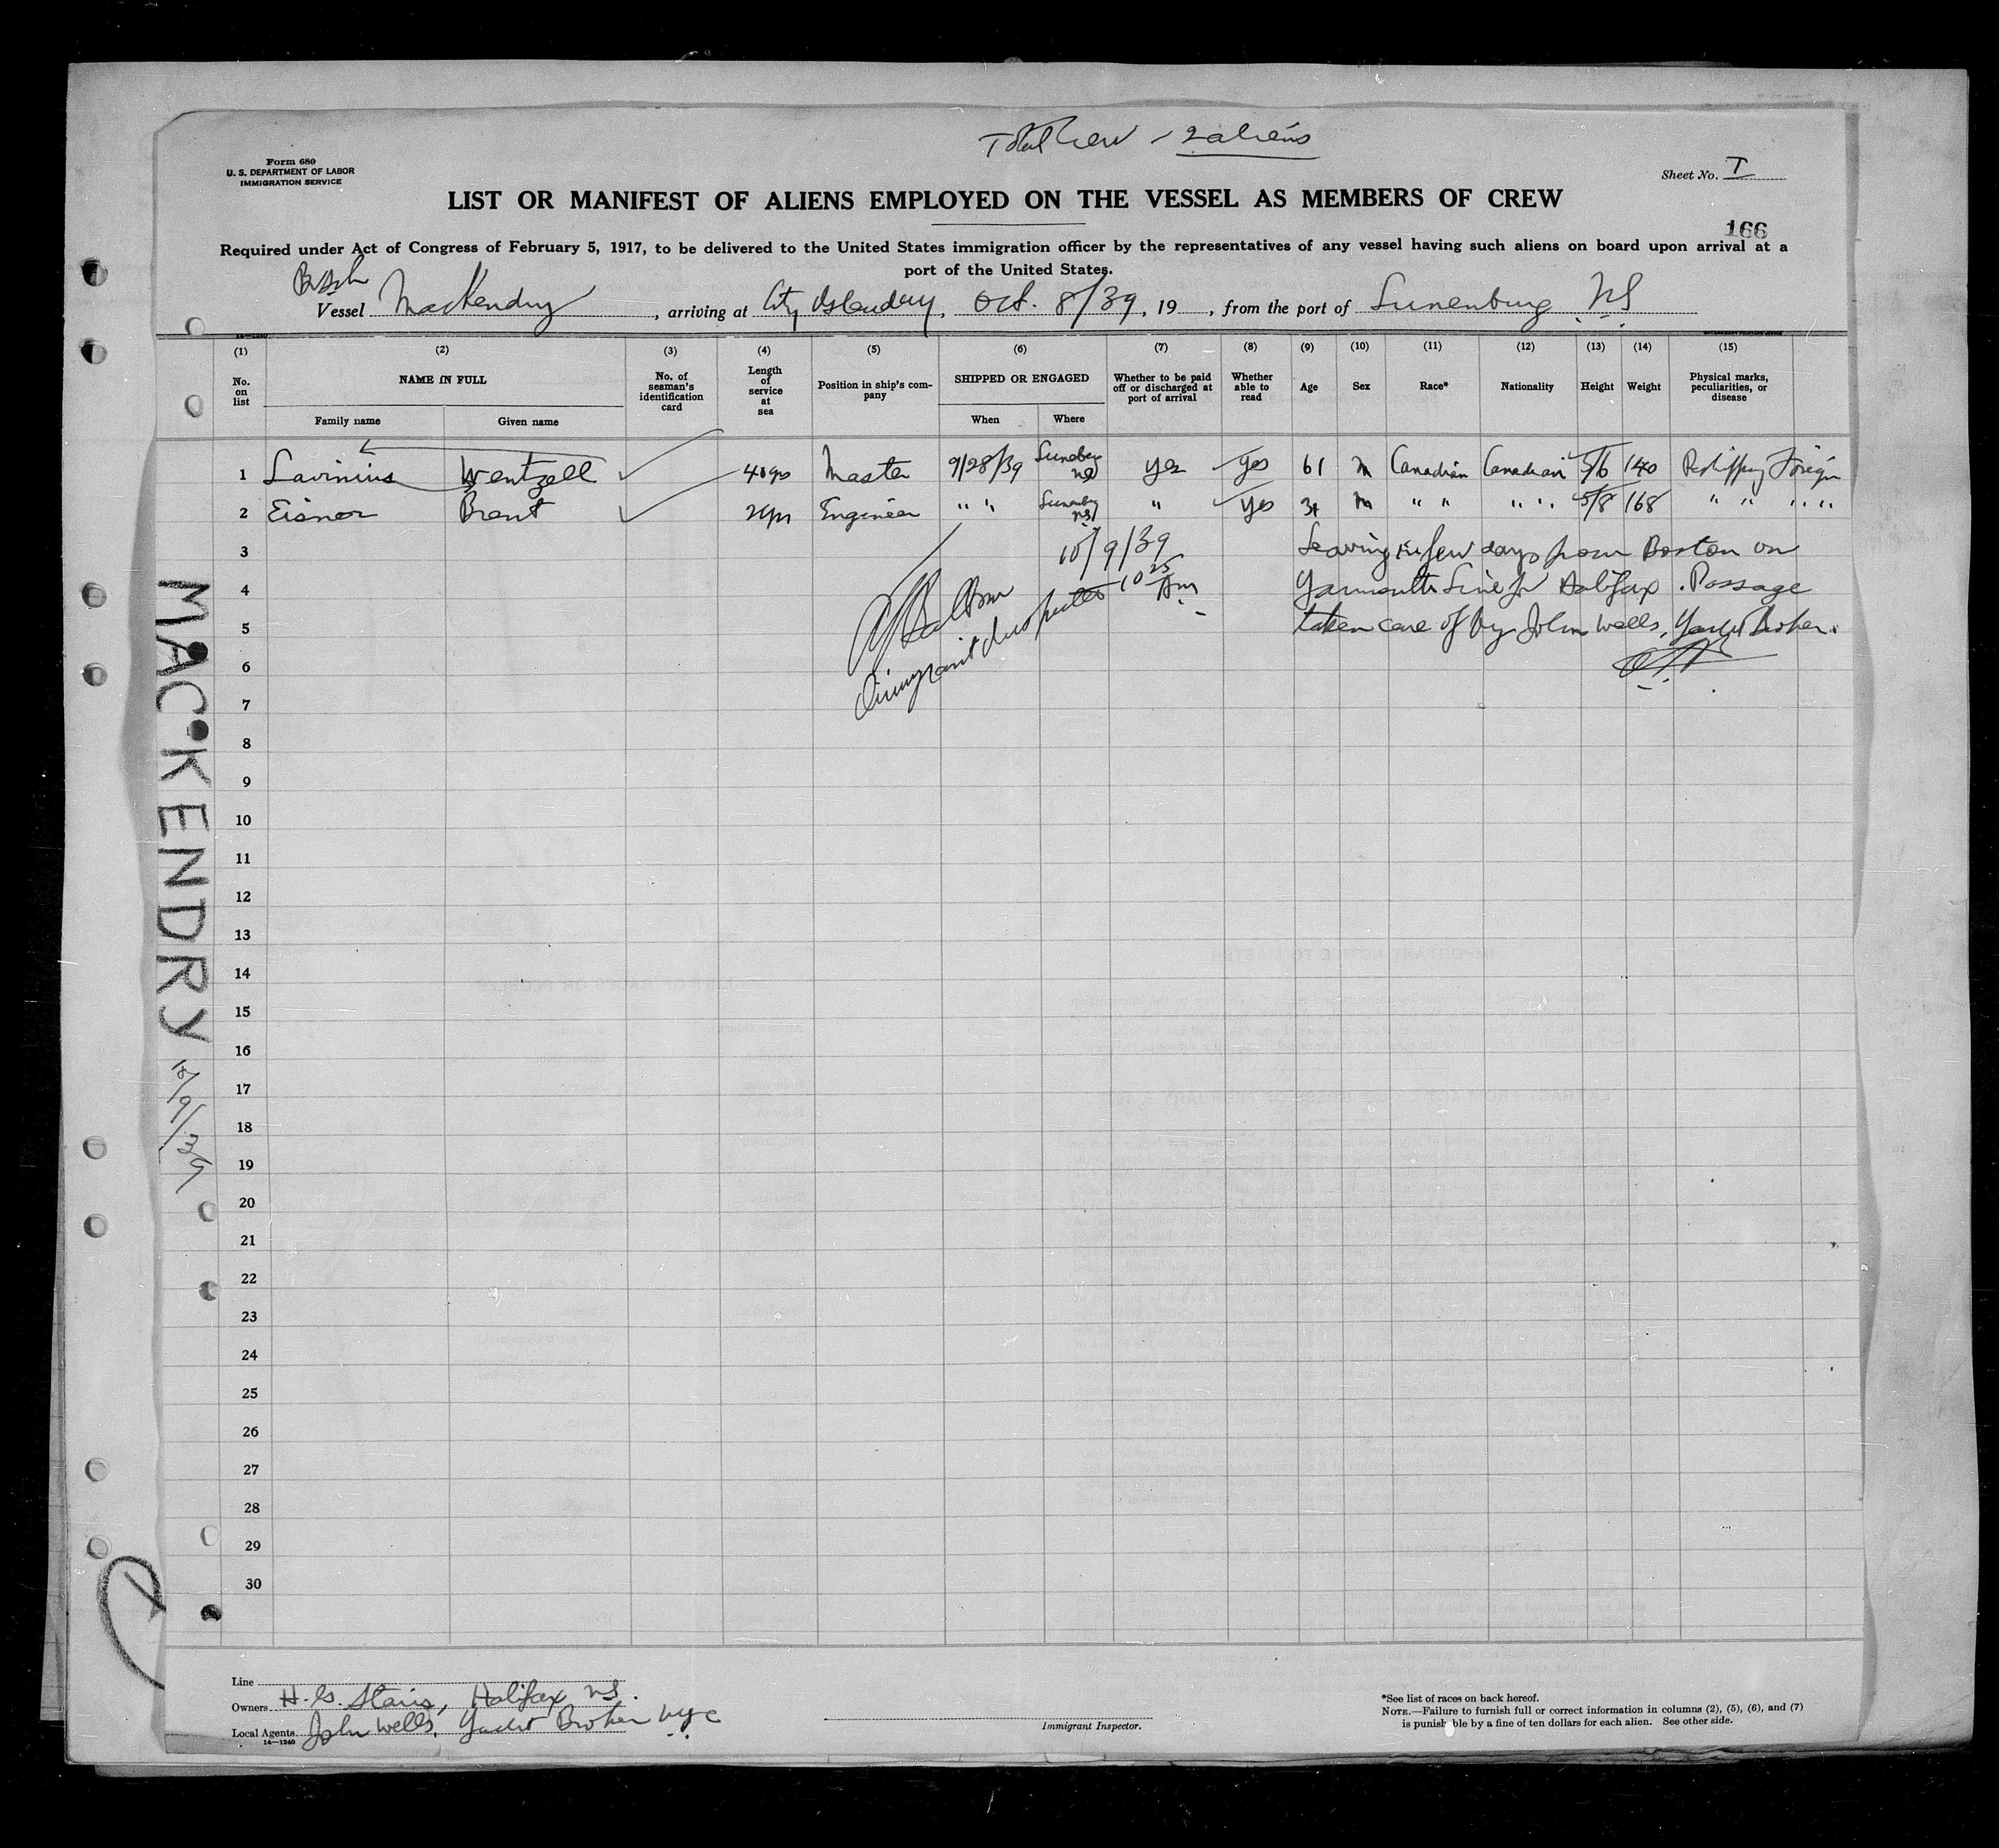 Total Crew - 2 aliens
Form 680
U. S. DEPARTMENT OF LABOR
IMMIGRATION SERVICE
Sheet No. I
LIST OR MANIFEST OF ALIENS EMPLOYED ON THE VESSEL AS MEMBERS OF CREW
166
Required under Act of Congress of February 5, 1917, to be delivered to the United States immigration officer by the representatives of any vessel having such aliens on board upon arrival at a
port of the United States.
Vessel MacKendry, arriving at City Island NY, Oct. 8/39, 19, from the port of Lunenburg NS
(1) (2) (3) (4) (5) (6) (7) (8) (9) (10) (11) (12) (13) (14) (15)
No. on list NAME IN FULL No. of seaman's identification card Length of service at sea Position in ship's company SHIPPED OR ENGAGED Whether to be paid off or discharged at port of arrival Whether able to read Age Sex Race* Nationality Height Weight Physical marks, peculiarities, or disease
Family name Given name When Where
1 Lavinius Wentzell 40 yrs Master 9/28/39 NS yes yes 61 M Canadian Canadian 5/6 140 Reshipping Foreign
2 Eisnor Brent Engineer " " NS " yes 31 M " " " " 5/8 168 " " " "
3 10/9/39 Leaving in few days from Boston on
4 10 25 Am Yarmouth Line for Halifax. Passage
5 taken care of by John Wells, Yacht Broker.
Immigrant Inspector
6
7
8
9
10
11
12
13
14
15
16
17
18
19
20
21
22
23
24
25
26
27
28
29
30
MAC KENDRY 10/9/39
Line
Owners H. G. Stairs, Halifax NS.
Local Agents John Wells, Yacht Broker NYC
14—1240
Immigrant Inspector.
*See list of races on back hereof.
NOTE.—Failure to furnish full or correct information in columns (2), (5), (6), and (7)
is punish ble by a fine of ten dollars for each alien. See other side.